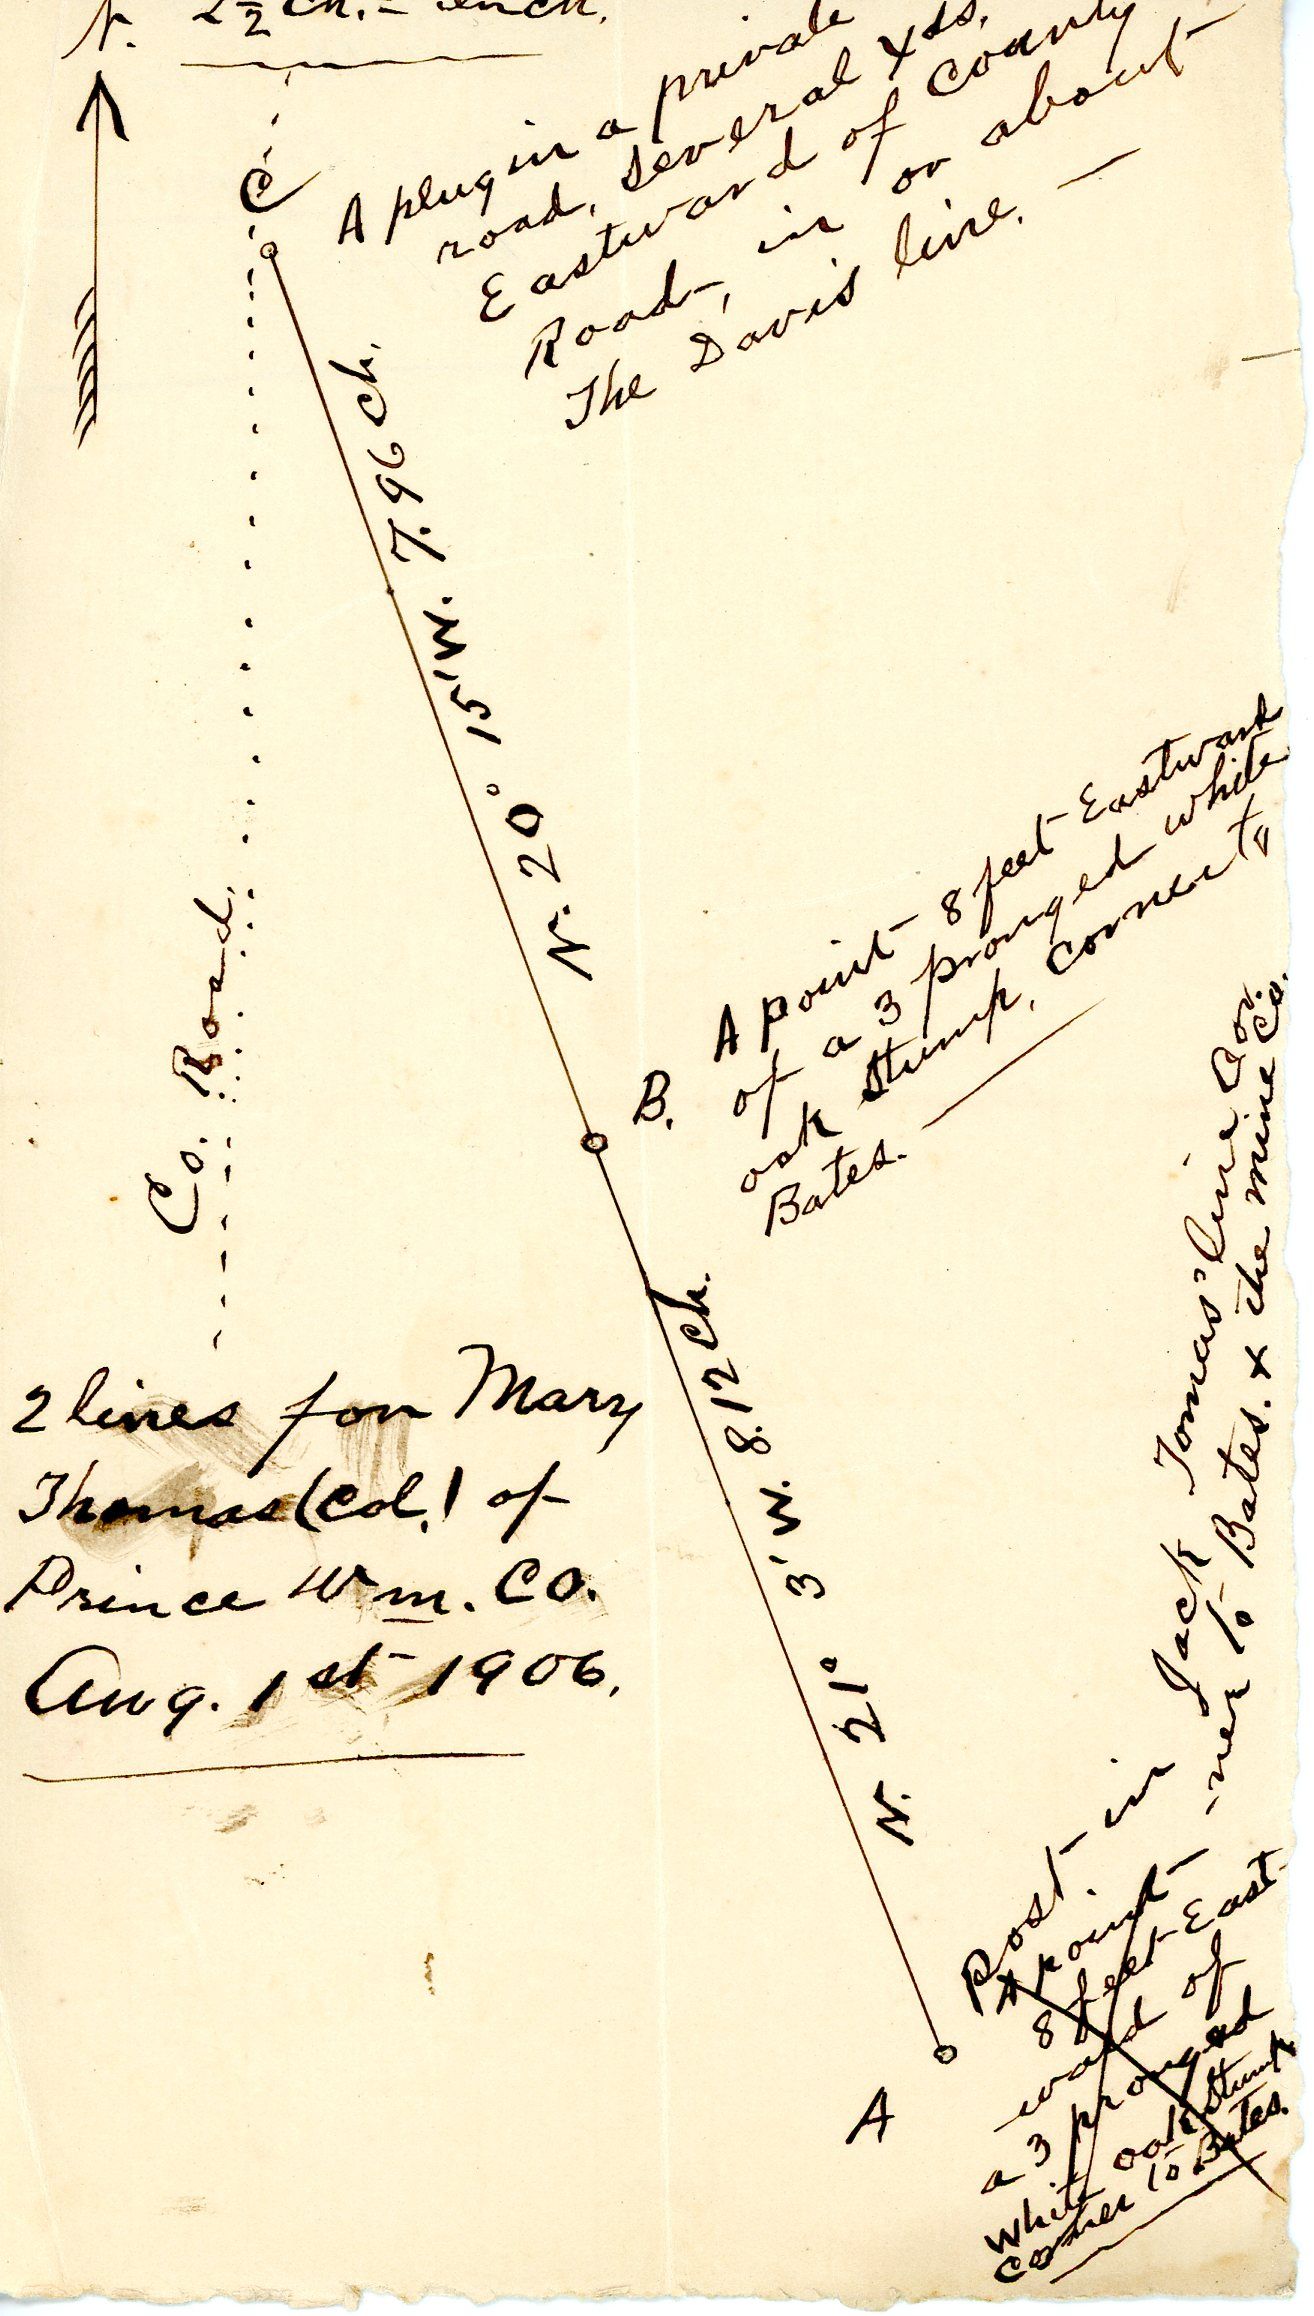 2½ Ch. = inch.
C
A plug in a private
road, several yds.
Eastward of County
Road, in or about
The Davis line.
N. 20° 15' W. 7.96 Ch.
Co. Road.
B.
A point 8 feet Eastward
of a 3 pronged white
oak stump, corner to
Bates.
N. 21° 3' W. 8.12 Ch.
2 lines for Mary
Thomas (Col.) of
Prince Wm. Co.
Aug. 1st 1906.
A
Post in Jack Tomas' line Cor.
-ner to Bates. & the mine Co.
A point
8 feet East-
-ward of
a 3 pronged
white oak stump
corner to Bates.